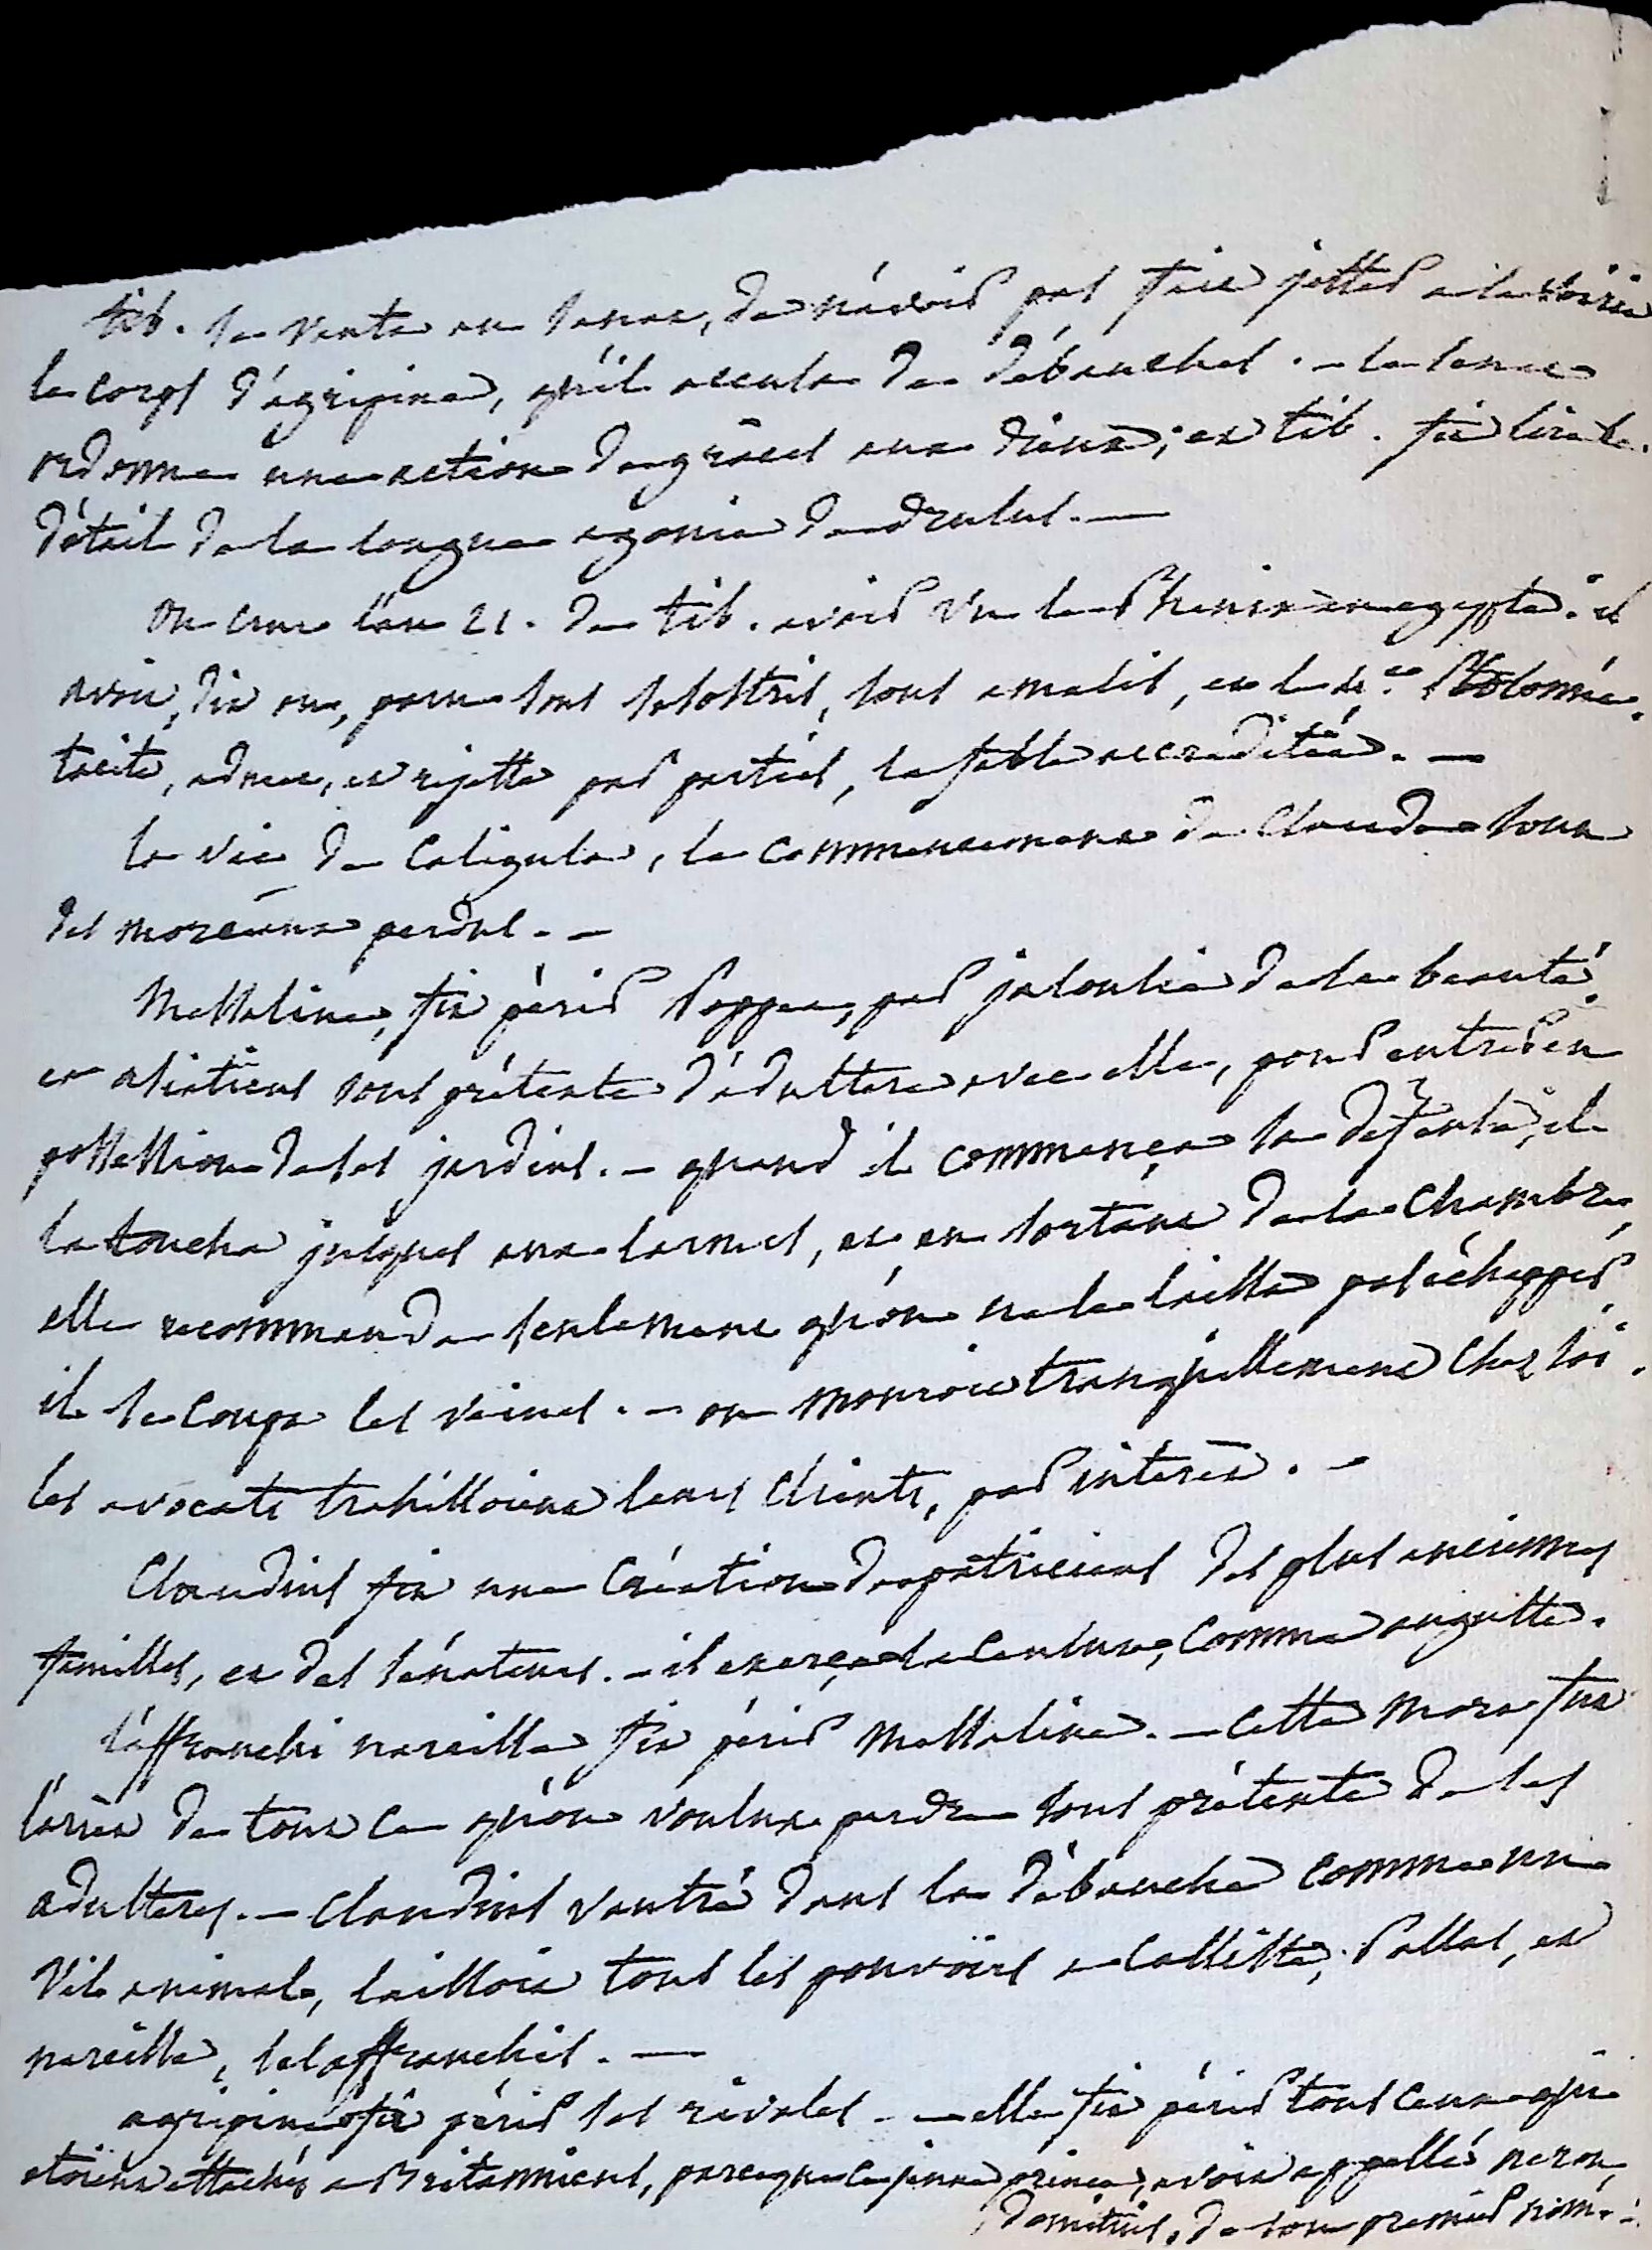 tib. se vente au senat, de n'avoir pas fait jetter a la voirie
le corps d'agripine, qu'il accusa de débauches. - le senat
ordonna une action de graces aux dieux; et tib. fit lire le
détail de la longue agonie de drusus. —
on crut l'an 21. de tib. avoir vu le Phenix en egypte. il
avoit, dit on, paru sous sesostris, sous amasis, et le 3.e Ptolomée.
tacite, admet, et rejette par parties, la fable accreditée. —
la vie de Caligula, le commencement de Claude sont
des morceaux perdus. -
Messaline, fit périr Poppea, par jalousie de sa beauté
et asiaticus sous prétexte d'adultere avec elle, pour entrer en
possession de ses jardins. - quand il commença sa défense, il
la toucha jusques aux larmes, et en sortant de la chambre,
elle recommanda seulement qu'on ne le laissa pas échapper.
il se coupa les veines. - on mouroit tranquillement chez soi.
les avocats trahissoient leurs clients, par interet. -
Claudius fit une création de patriciens des plus anciennes
familles, et des sénateurs. - il exerça la censure, comme auguste.
l'affranchi narcisse fit périr Messaline. - cette mort fut
l'arrêt de tout ce qu'on voulut perdre sous prétexte de ses
adulteres. - Claudius vautré dans la débauche comme un
vil animal, laissoit tous les pouvoirs a Calliste, Pallas, et
narcisse, ses affranchis. —
agripine fit périr ses rivales. - elle fit périr tous ceux qui
etoient attachés a Britannicus, parceque ce jeune prince, avoit appellé neron,
domitius, de son premier nom. -